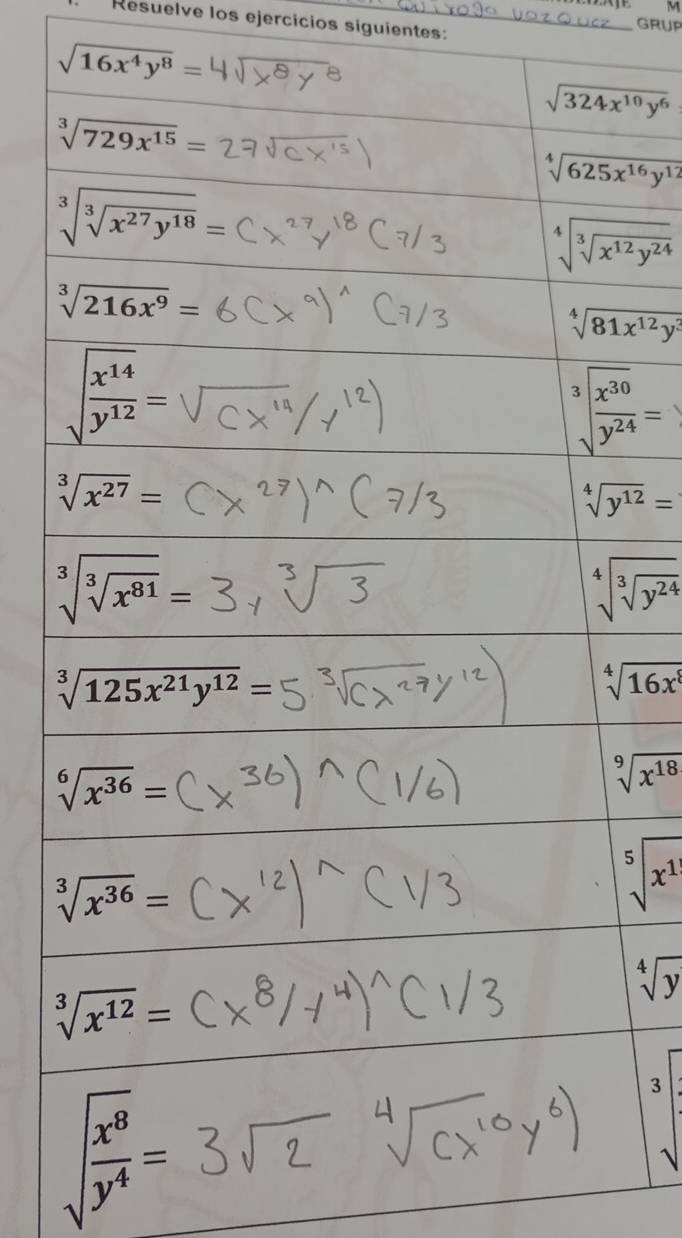 Resuelve los ejercicios siguientes:
GRUP
√16x⁴y⁸ = 4√x⁸y⁸
√324x¹⁰y⁶
∛729x¹⁵ = 27√(x¹⁵)
∜625x¹⁶y¹²
∛∛x²⁷y¹⁸ = (x²⁷y¹⁸(7/3
∜∛x¹²y²⁴
∛216x⁹ = 6(x⁹)^(7/3
∜81x¹²y
√x¹⁴/y¹² = √(x¹⁴/y¹²)
∛x³⁰/y²⁴ =
∛x²⁷ = (x²⁷)^(7/3
∜y¹² =
∛∛x⁸¹ = 3, ∛3
∜∛y²⁴
∛125x²¹y¹² = 5 ∛(x²⁷y¹²)
∜16x⁸
⁶√x³⁶ = (x³⁶)^(1/6)
⁹√x¹⁸
∛x³⁶ = (x¹²)^(1/3
⁵√x¹
∛x¹² = (x⁸/y⁴)^(1/3
∜y
√x⁸/y⁴ = 3√2 ∜(x¹⁰y⁶)
3